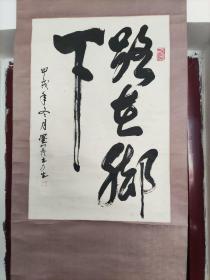 路在脚
下
甲戌年冬月